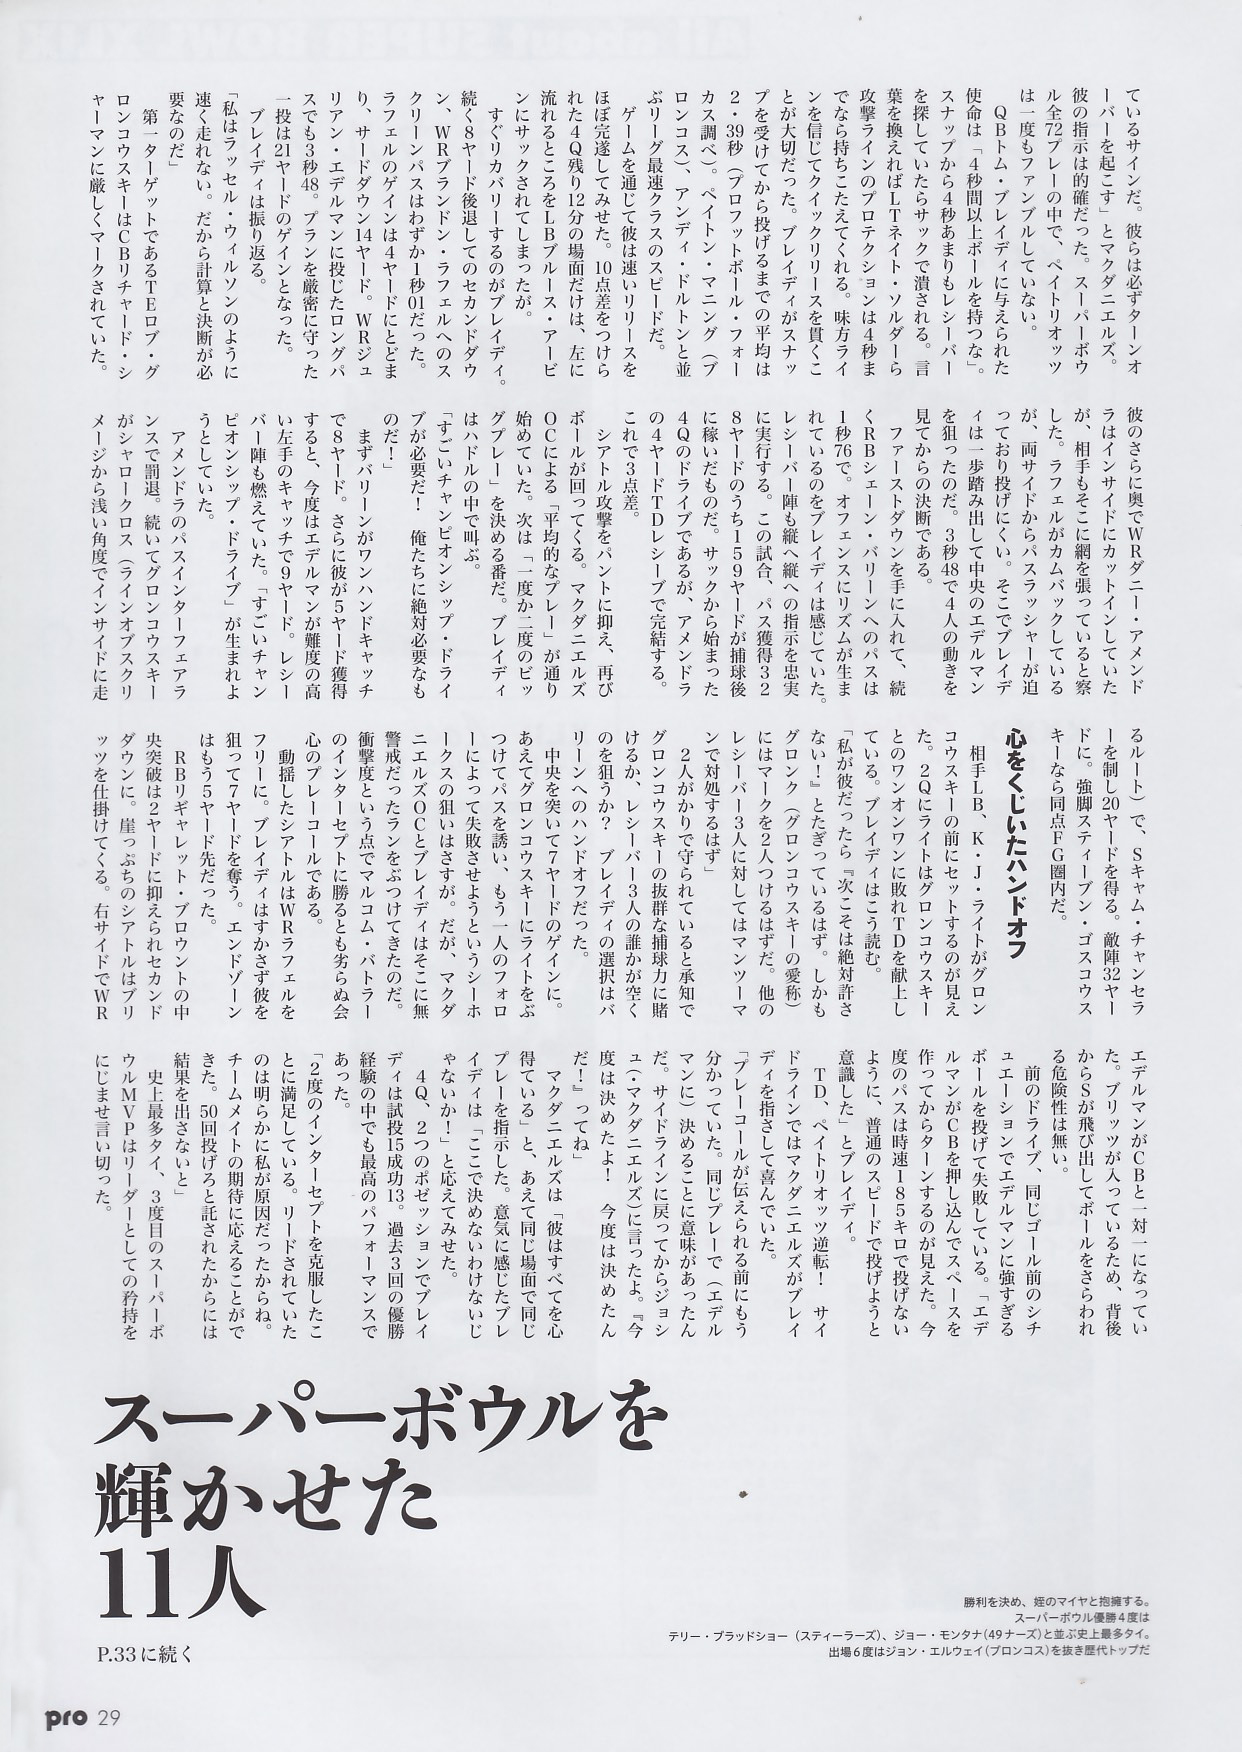 ているサインだ。彼らは必ずターンオ
ーバーを起こす」とマクダニエルズ。
彼の指示は的確だった。スーパーボウ
ル全72プレーの中で、ペイトリオッツ
は一度もファンブルしていない。
　QBトム・ブレイディに与えられた
使命は「4秒間以上ボールを持つな」。
スナップから4秒あまりもレシーバー
を探していたらサックで潰される。言
葉を換えればLTネイト・ソルダーら
攻撃ラインのプロテクションは4秒ま
でなら持ちこたえてくれる。味方ライ
ンを信じてクイックリリースを貫くこ
とが大切だった。ブレイディがスナッ
プを受けてから投げるまでの平均は
2・39秒（プロフットボール・フォー
カス調べ）。ペイトン・マニング（ブ
ロンコス）、アンディ・ドルトンと並
ぶリーグ最速クラスのスピードだ。
　ゲームを通じて彼は速いリリースを
ほぼ完遂してみせた。10点差をつけら
れた4Q残り12分の場面だけは、左に
流れるところをLBブルース・アービ
ンにサックされてしまったが。
　すぐリカバリーするのがブレイディ。
続く8ヤード後退してのセカンドダウ
ン、WRブランドン・ラフェルへのス
クリーンパスはわずか1秒01だった。
ラフェルのゲインは4ヤードにとどま
り、サードダウン14ヤード。WRジュ
リアン・エデルマンに投じたロングパ
スでも3秒48。プランを厳密に守った
一投は21ヤードのゲインとなった。
　ブレイディは振り返る。
「私はラッセル・ウィルソンのように
速く走れない。だから計算と決断が必
要なのだ」
　第一ターゲットであるTEロブ・グ
ロンコウスキーはCBリチャード・シ
ャーマンに厳しくマークされていた。
彼のさらに奥でWRダニー・アメンド
ラはインサイドにカットインしていた
が、相手もそこに網を張っていると察
した。ラフェルがカムバックしている
が、両サイドからパスラッシャーが迫
っており投げにくい。そこでブレイデ
ィは一歩踏み出して中央のエデルマン
を狙ったのだ。3秒48で4人の動きを
見てからの決断である。
　ファーストダウンを手に入れて、続
くRBシェーン・バリーンへのパスは
1秒76で。オフェンスにリズムが生ま
れているのをブレイディは感じていた。
レシーバー陣も縦へ縦への指示を忠実
に実行する。この試合、パス獲得32
8ヤードのうち159ヤードが捕球後
に稼いだものだ。サックから始まった
4Qのドライブであるが、アメンドラ
の4ヤードTDレシーブで完結する。
これで3点差。
　シアトル攻撃をパントに抑え、再び
ボールが回ってくる。マクダニエルズ
OCによる「平均的なプレー」が通り
始めていた。次は「一度か二度のビッ
グプレー」を決める番だ。ブレイディ
はハドルの中で叫ぶ。
「すごいチャンピオンシップ・ドライ
ブが必要だ！　俺たちに絶対必要なも
のだ！」
　まずバリーンがワンハンドキャッチ
で8ヤード。さらに彼が5ヤード獲得
すると、今度はエデルマンが難度の高
い左手のキャッチで9ヤード。レシー
バー陣も燃えていた。「すごいチャン
ピオンシップ・ドライブ」が生まれよ
うとしていた。
　アメンドラのパスインターフェアラ
ンスで罰退。続いてグロンコウスキー
がシャロークロス（ラインオブスクリ
メージから浅い角度でインサイドに走
るルート）で、Sキャム・チャンセラ
ーを制し20ヤードを得る。敵陣32ヤー
ドに。強脚スティーブン・ゴスコウス
キーなら同点FG圏内だ。
心をくじいたハンドオフ
　相手LB、K・J・ライトがグロン
コウスキーの前にセットするのが見え
た。2Qにライトはグロンコウスキー
とのワンオンワンに敗れTDを献上し
ている。ブレイディはこう読む。
「私が彼だったら『次こそは絶対許さ
ない！』とたぎっているはず。しかも
グロンク（グロンコウスキーの愛称）
にはマークを2人つけるはずだ。他の
レシーバー3人に対してはマンツーマ
ンで対処するはず」
　2人がかりで守られていると承知で
グロンコウスキーの抜群な捕球力に賭
けるか、レシーバー3人の誰かが空く
のを狙うか？　ブレイディの選択はバ
リーンへのハンドオフだった。
　中央を突いて7ヤードのゲインに。
あえてグロンコウスキーにライトをぶ
つけてパスを誘い、もう一人のフォロ
ーによって失敗させようというシーホ
ークスの狙いはさすが。だが、マクダ
ニエルズOCとブレイディはそこに無
警戒だったランをぶつけてきたのだ。
衝撃度という点でマルコム・バトラー
のインターセプトに勝るとも劣らぬ会
心のプレーコールである。
　動揺したシアトルはWRラフェルを
フリーに。ブレイディはすかさず彼を
狙って7ヤードを奪う。エンドゾーン
はもう5ヤード先だった。
　RBリギャレット・ブロウントの中
央突破は2ヤードに抑えられセカンド
ダウンに。崖っぷちのシアトルはブリ
ッツを仕掛けてくる。右サイドでWR
エデルマンがCBと一対一になってい
た。ブリッツが入っているため、背後
からSが飛び出してボールをさらわれ
る危険性は無い。
　前のドライブ、同じゴール前のシチ
ュエーションでエデルマンに強すぎる
ボールを投げて失敗している。「エデ
ルマンがCBを押し込んでスペースを
作ってからターンするのが見えた。今
度のパスは時速185キロで投げない
ように、普通のスピードで投げようと
意識した」とブレイディ。
　TD、ペイトリオッツ逆転！　サイ
ドラインではマクダニエルズがブレイ
ディを指さして喜んでいた。
「プレーコールが伝えられる前にもう
分かっていた。同じプレーで（エデル
マンに）決めることに意味があったん
だ。サイドラインに戻ってからジョシ
ュ（・マクダニエルズ）に言ったよ。『今
度は決めたよ！　今度は決めたん
だ！』ってね」
　マクダニエルズは「彼はすべてを心
得ている」と、あえて同じ場面で同じ
プレーを指示した。意気に感じたブレ
イディは「ここで決めないわけないじ
ゃないか！」と応えてみせた。
　4Q、2つのポゼッションでブレイ
ディは試投15成功13。過去3回の優勝
経験の中でも最高のパフォーマンスで
あった。
「2度のインターセプトを克服したこ
とに満足している。リードされていた
のは明らかに私が原因だったからね。
チームメイトの期待に応えることがで
きた。50回投げろと託されたからには
結果を出さないと」
　史上最多タイ、3度目のスーパーボ
ウルMVPはリーダーとしての矜持を
にじませ言い切った。
スーパーボウルを
輝かせた
11人
P.33に続く
勝利を決め、姪のマイヤと抱擁する。
スーパーボウル優勝4度は
テリー・ブラッドショー（スティーラーズ）、ジョー・モンタナ（49ナーズ）と並ぶ史上最多タイ。
出場6度はジョン・エルウェイ（ブロンコス）を抜き歴代トップだ
pro 29